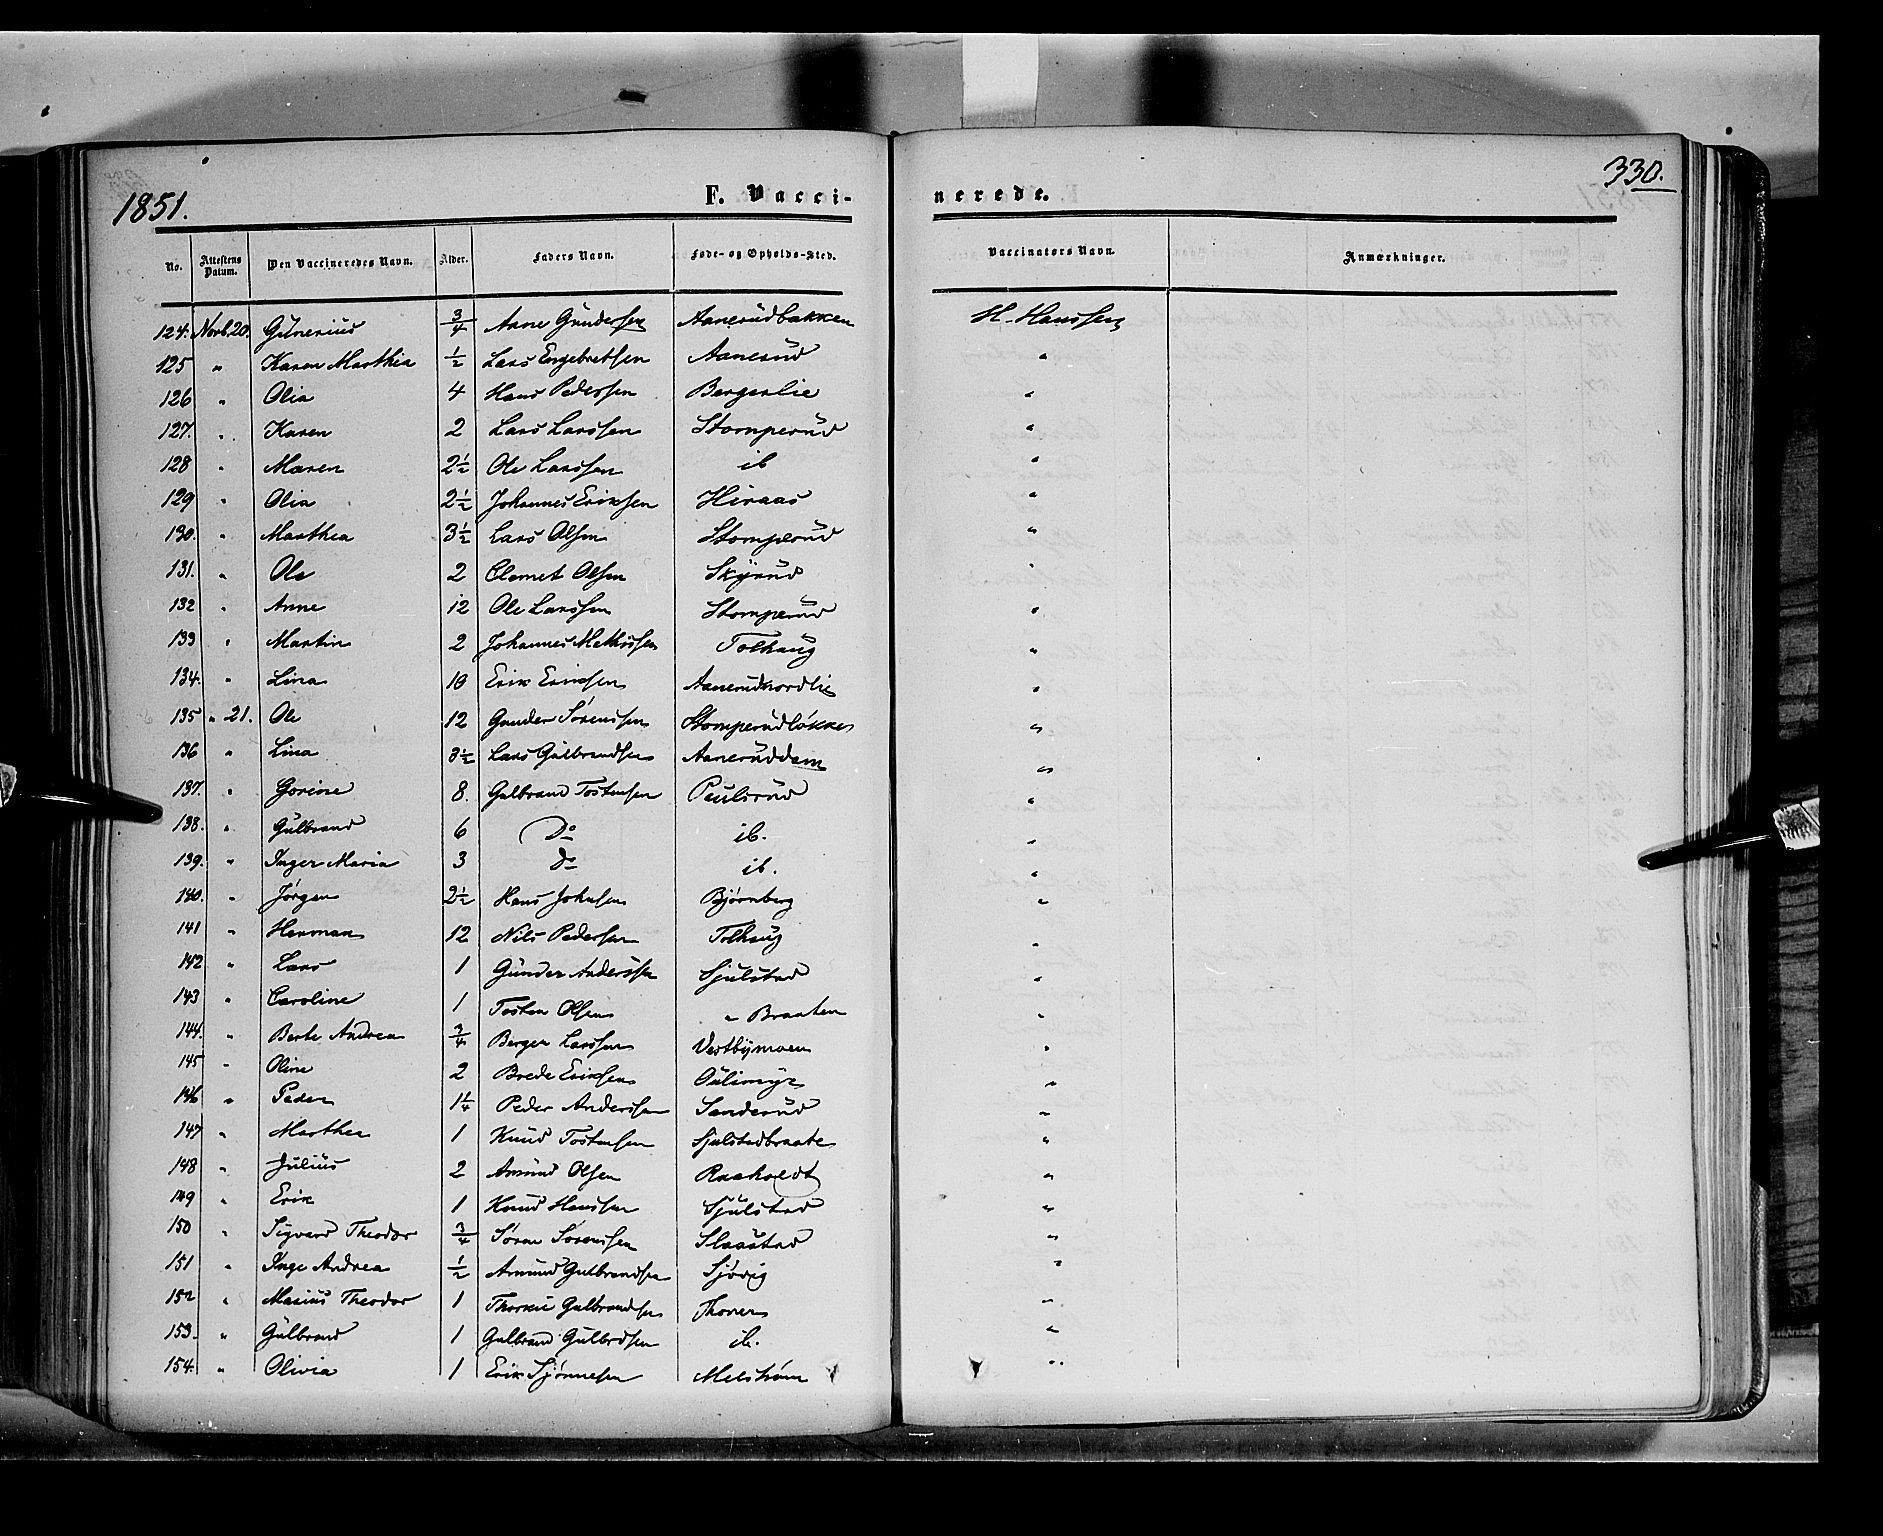 1851.
F. Vaccinerede.
330.
No. Attestens Datum. Den Vaccineredes Navn. Alder. Faders Navn. Føde- og Opholds-Sted. Vaccinators Navn. Anmærkninger.
124. Novb. 20. Gunerius 3/4 Arne Gundersen Aanerudbakken H. Hanssen
125 " Karen Marthia 1/2 Lars Engebretsen Aanerud "
126 " Olia 4 Hans Pederssen Bergerlie "
127. " Karen 2 Lars Larssen Stomperud "
128 " Maren 2 1/2 Ole Larssen ib "
129 " Olia 2 1/2 Johannes Eriksen Hiraas "
130. " Marthea 3 1/2 Lars Olsen Stomperud "
131. " Ole 2 Clemet Olsen Skyrud "
132 " Anne 12 Ole Larssen Stomperud "
133 " Martin 2 Johannes Mathissen Tolhaug "
134. " Lina 10 Erik Eriksen Aanerudnordlie "
135 " 21. Ole 12 Gunder Sørenssen Stomperudløkke "
136 " Lina 3 1/2 Lars Gulbrandsen Aaneruddam "
137. " Gorine 8. Gulbrand Tostensen Paulsrud "
138. " Gulbrand 6 Do ib. "
139. " Inger Maria 3 do ib. "
140. " Jørgen 2 1/2 Hans Johnsen Bjørnberg "
141 " Herman 12 Nils Pedersen Tolhaug "
142 " Lars 1 Gunder Anderssen Sjulstad "
143 " Caroline 1 Tosten Olsen " Braaten "
144. " Berte Andrea 3/4 Berger Larssen Vestbymoen "
145 " Oline 2 Brede Eriksen Oulimyr "
146 " Peder 1 1/4 Peder Anderssen Sanderud "
147 " Marthea 1 Knud Tostensen Sjulstadbraate "
148 " Julius 2 Amund Olsen Raaholdt "
149 " Erik 1 Knud Hanssen Sjulstad "
150 " Sigvard Theodor 3/4 Søren Sørenssen Slaastad "
151 " Inge Andrea 1/2 Amund Gulbrandsen Sjøvig "
152 " Marius Theodor 1 Thorkil Gulbrandsen Thoner "
153. " Gulbrand 1 Gulbrand Gulbrdsen ib. "
154. " Olivia 1 Erik Sjønnesen Melstrøm "